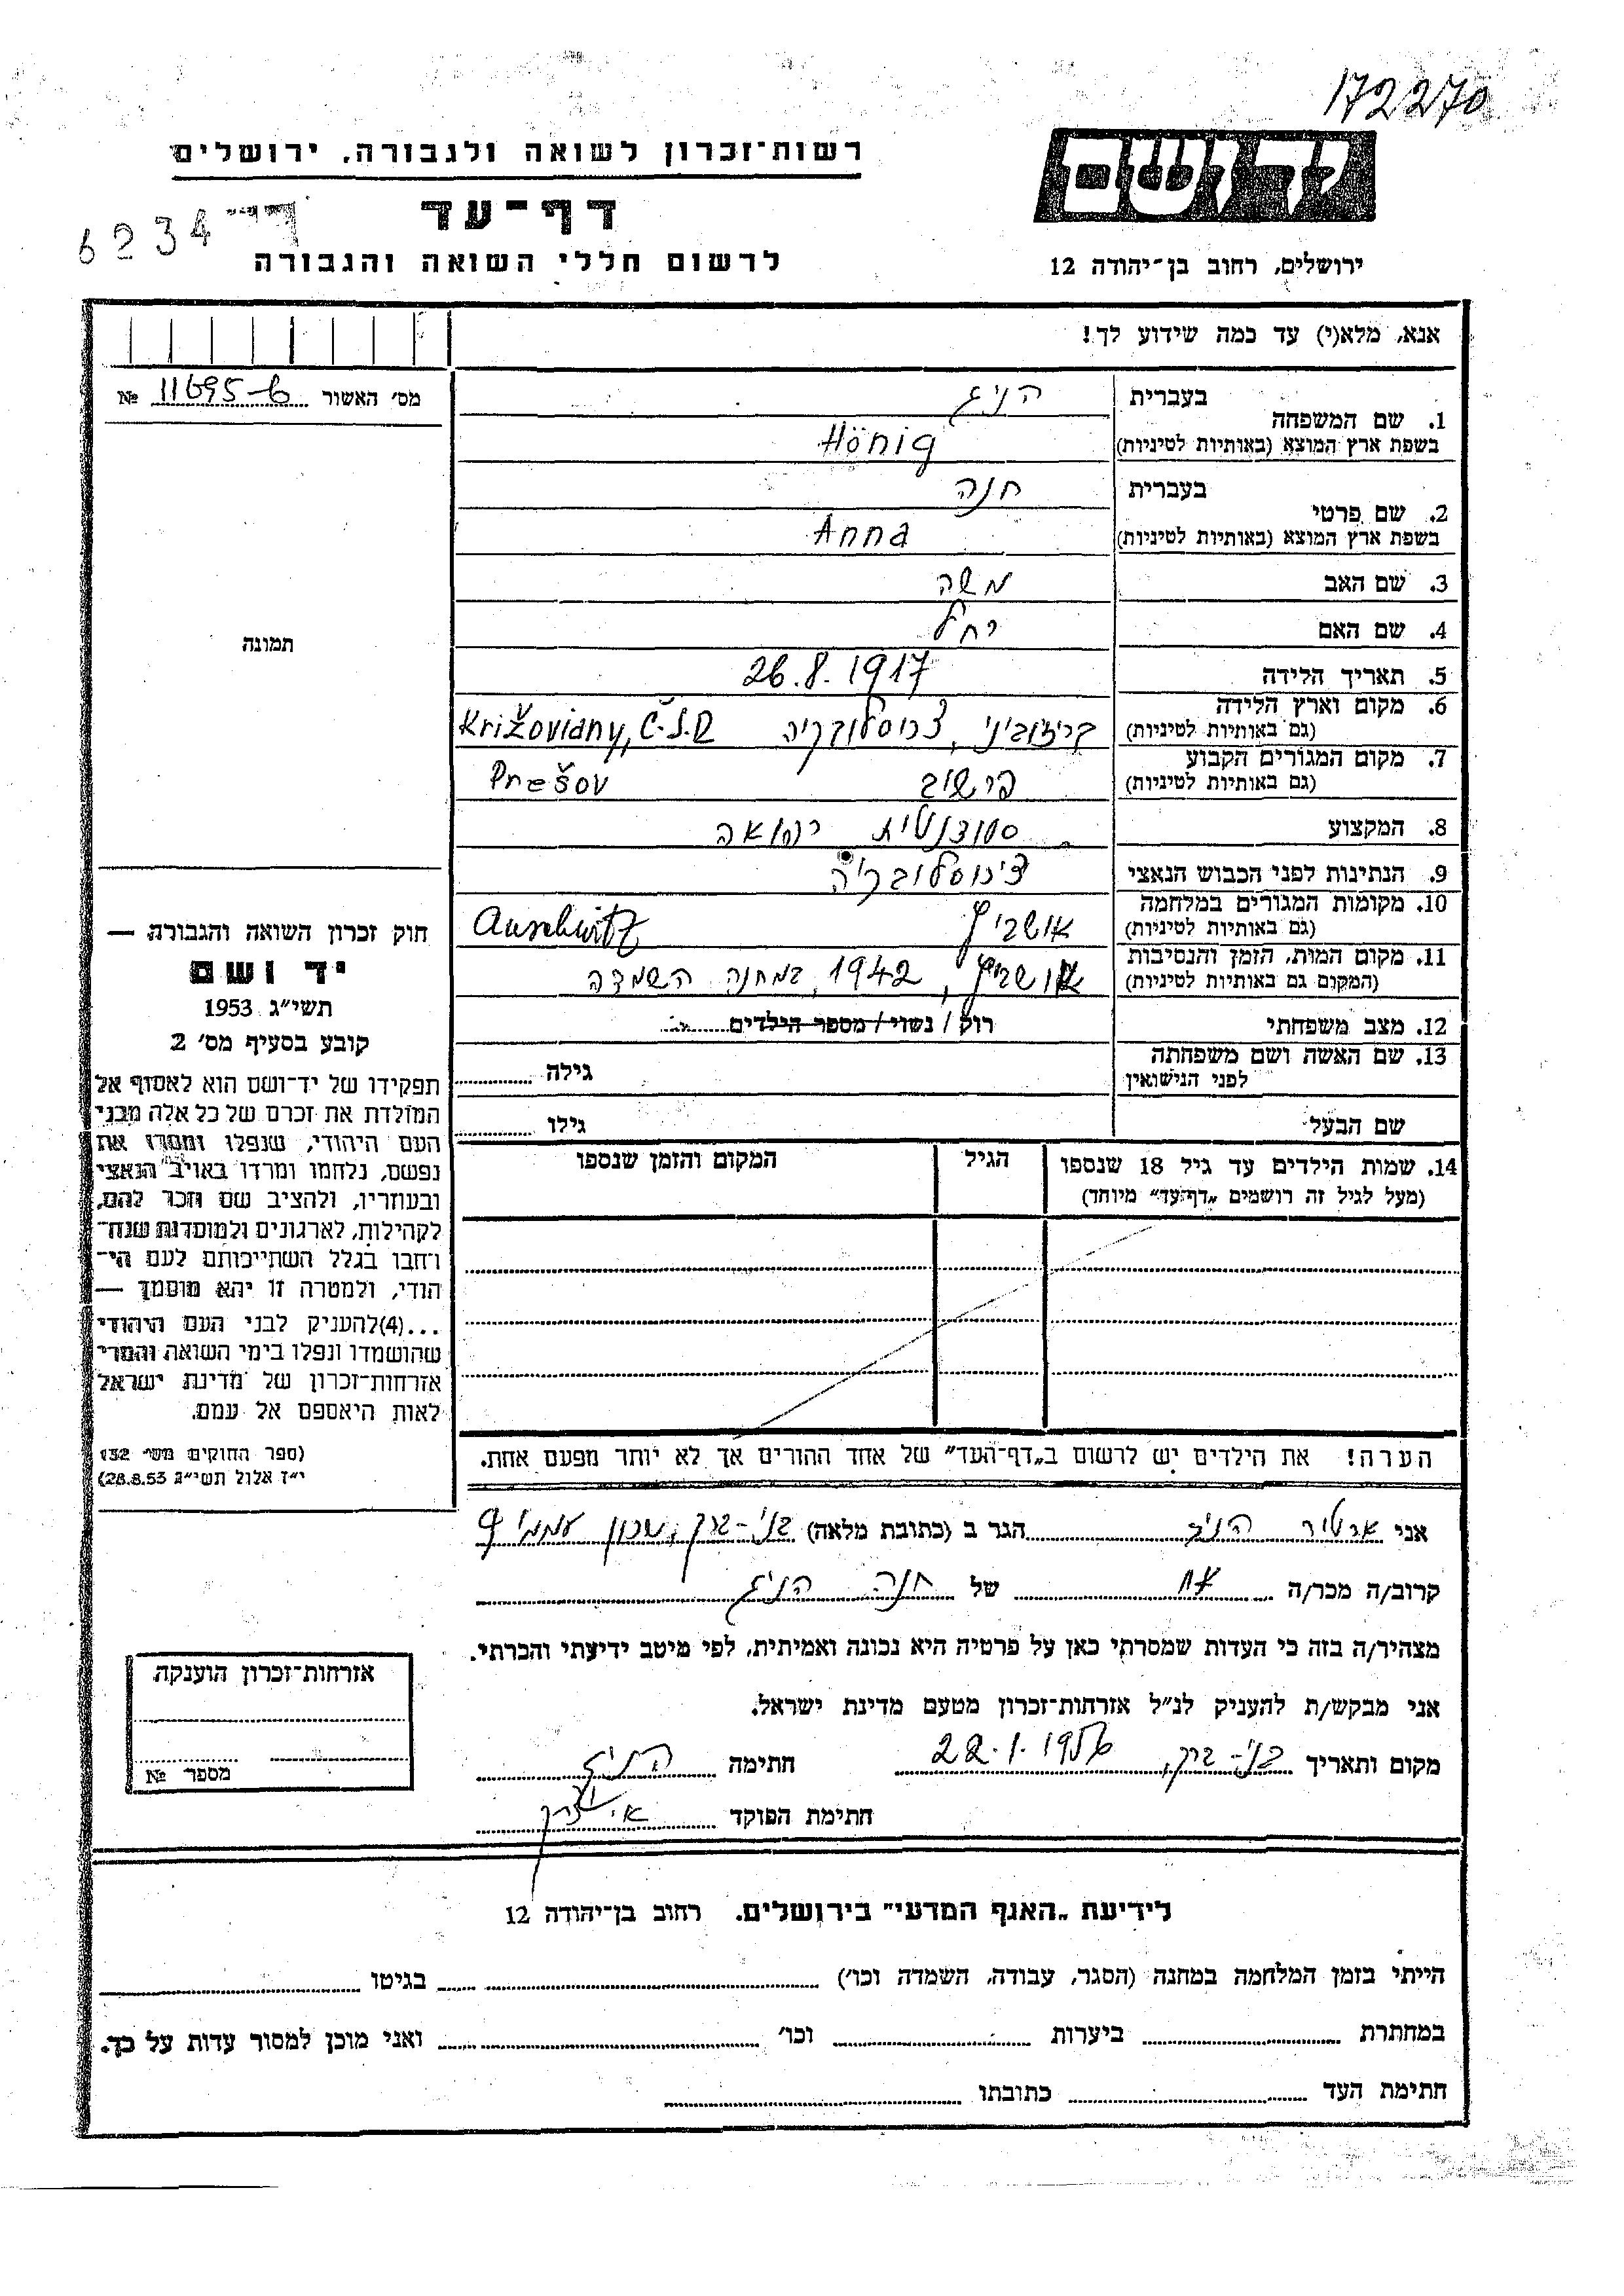 172270
רשות־זכרון לשואה ולגבורה, ירושלים
יד ושם
דף־עד
6234
לרשום חללי השואה והגבורה
ירושלים, רחוב בן־יהודה 12
אנא, מלא(י) עד כמה שידוע לך!
מס' האשור 11695-6 №
1. שם המשפחה
בעברית הניג
בשפת ארץ המוצא (באותיות לטיניות) Hönig
2. שם פרטי
בעברית חנה
בשפת ארץ המוצא (באותיות לטיניות) Anna
3. שם האב משה
4. שם האם רחל
תמונה
5. תאריך הלידה 26.8.1917
6. מקום וארץ הלידה
(גם באותיות לטיניות) קריזוביני, צכוסלובקיה Križoviany, Č.S.R
7. מקום המגורים הקבוע
(גם באותיות לטיניות) פרשוב Prešov
8. המקצוע סטודנטית רפואה
9. הנתינות לפני הכבוש הנאצי צ'כוסלובקיה
10. מקומות המגורים במלחמה
(גם באותיות לטיניות) אושביץ Auschwitz
11. מקום המות, הזמן והנסיבות
(המקום גם באותיות לטיניות) אושביץ, 1942, במחנה השמדה
12. מצב משפחתי רוק / נשוי / מספר הילדים
13. שם האשה ושם משפחתה
לפני הנישואין גילה
שם הבעל גילו
14. שמות הילדים עד גיל 18 שנספו הגיל המקום והזמן שנספו
(מעל לגיל זה רושמים „דף־עד" מיוחד)
חוק זכרון השואה והגבורה —
יד ושם
תשי"ג 1953
קובע בסעיף מס' 2
תפקידו של יד־ושם הוא לאסוף אל
המולדת את זכרם של כל אלה מבני
העם היהודי, שנפלו ומסרו את
נפשם, נלחמו ומרדו באויב הנאצי
ובעוזריו, ולהציב שם וזכר להם,
לקהילות, לארגונים ולמוסדות שנח־
רחבו בגלל השתייכותם לעם הי־
הודי, ולמטרה זו יהא מוסמך —
...(4)להעניק לבני העם היהודי
שהושמדו ונפלו בימי השואה והמרי
אזרחות־זכרון של מדינת ישראל
לאות היאספם אל עמם.
(ספר החוקים מס' 132
י"ז אלול תשי"ג 28.8.53)
הערה! את הילדים יש לרשום ב„דף־העד" של אחד ההורים אך לא יותר מפעם אחת.
אני ארטור הניג הגר ב (כתובת מלאה) בני-ברק, שכון עממי 9
קרוב/ה מכר/ה אח של חנה הניג
מצהיר/ה בזה כי העדות שמסרתי כאן על פרטיה היא נכונה ואמיתית, לפי מיטב ידיעתי והכרתי.
אני מבקש/ת להעניק לנ"ל אזרחות־זכרון מטעם מדינת ישראל.
מקום ותאריך בני-ברק, 22.1.1956 חתימה הניג
חתימת הפוקד
אזרחות־זכרון הוענקה
מספר №
לידיעת „האגף המדעי" בירושלים. רחוב בן־יהודה 12
הייתי בזמן המלחמה במחנה (הסגר, עבודה, השמדה וכו') בגיטו
במחתרת ביערות וכו' ואני מוכן למסור עדות על כך.
חתימת העד כתובתו